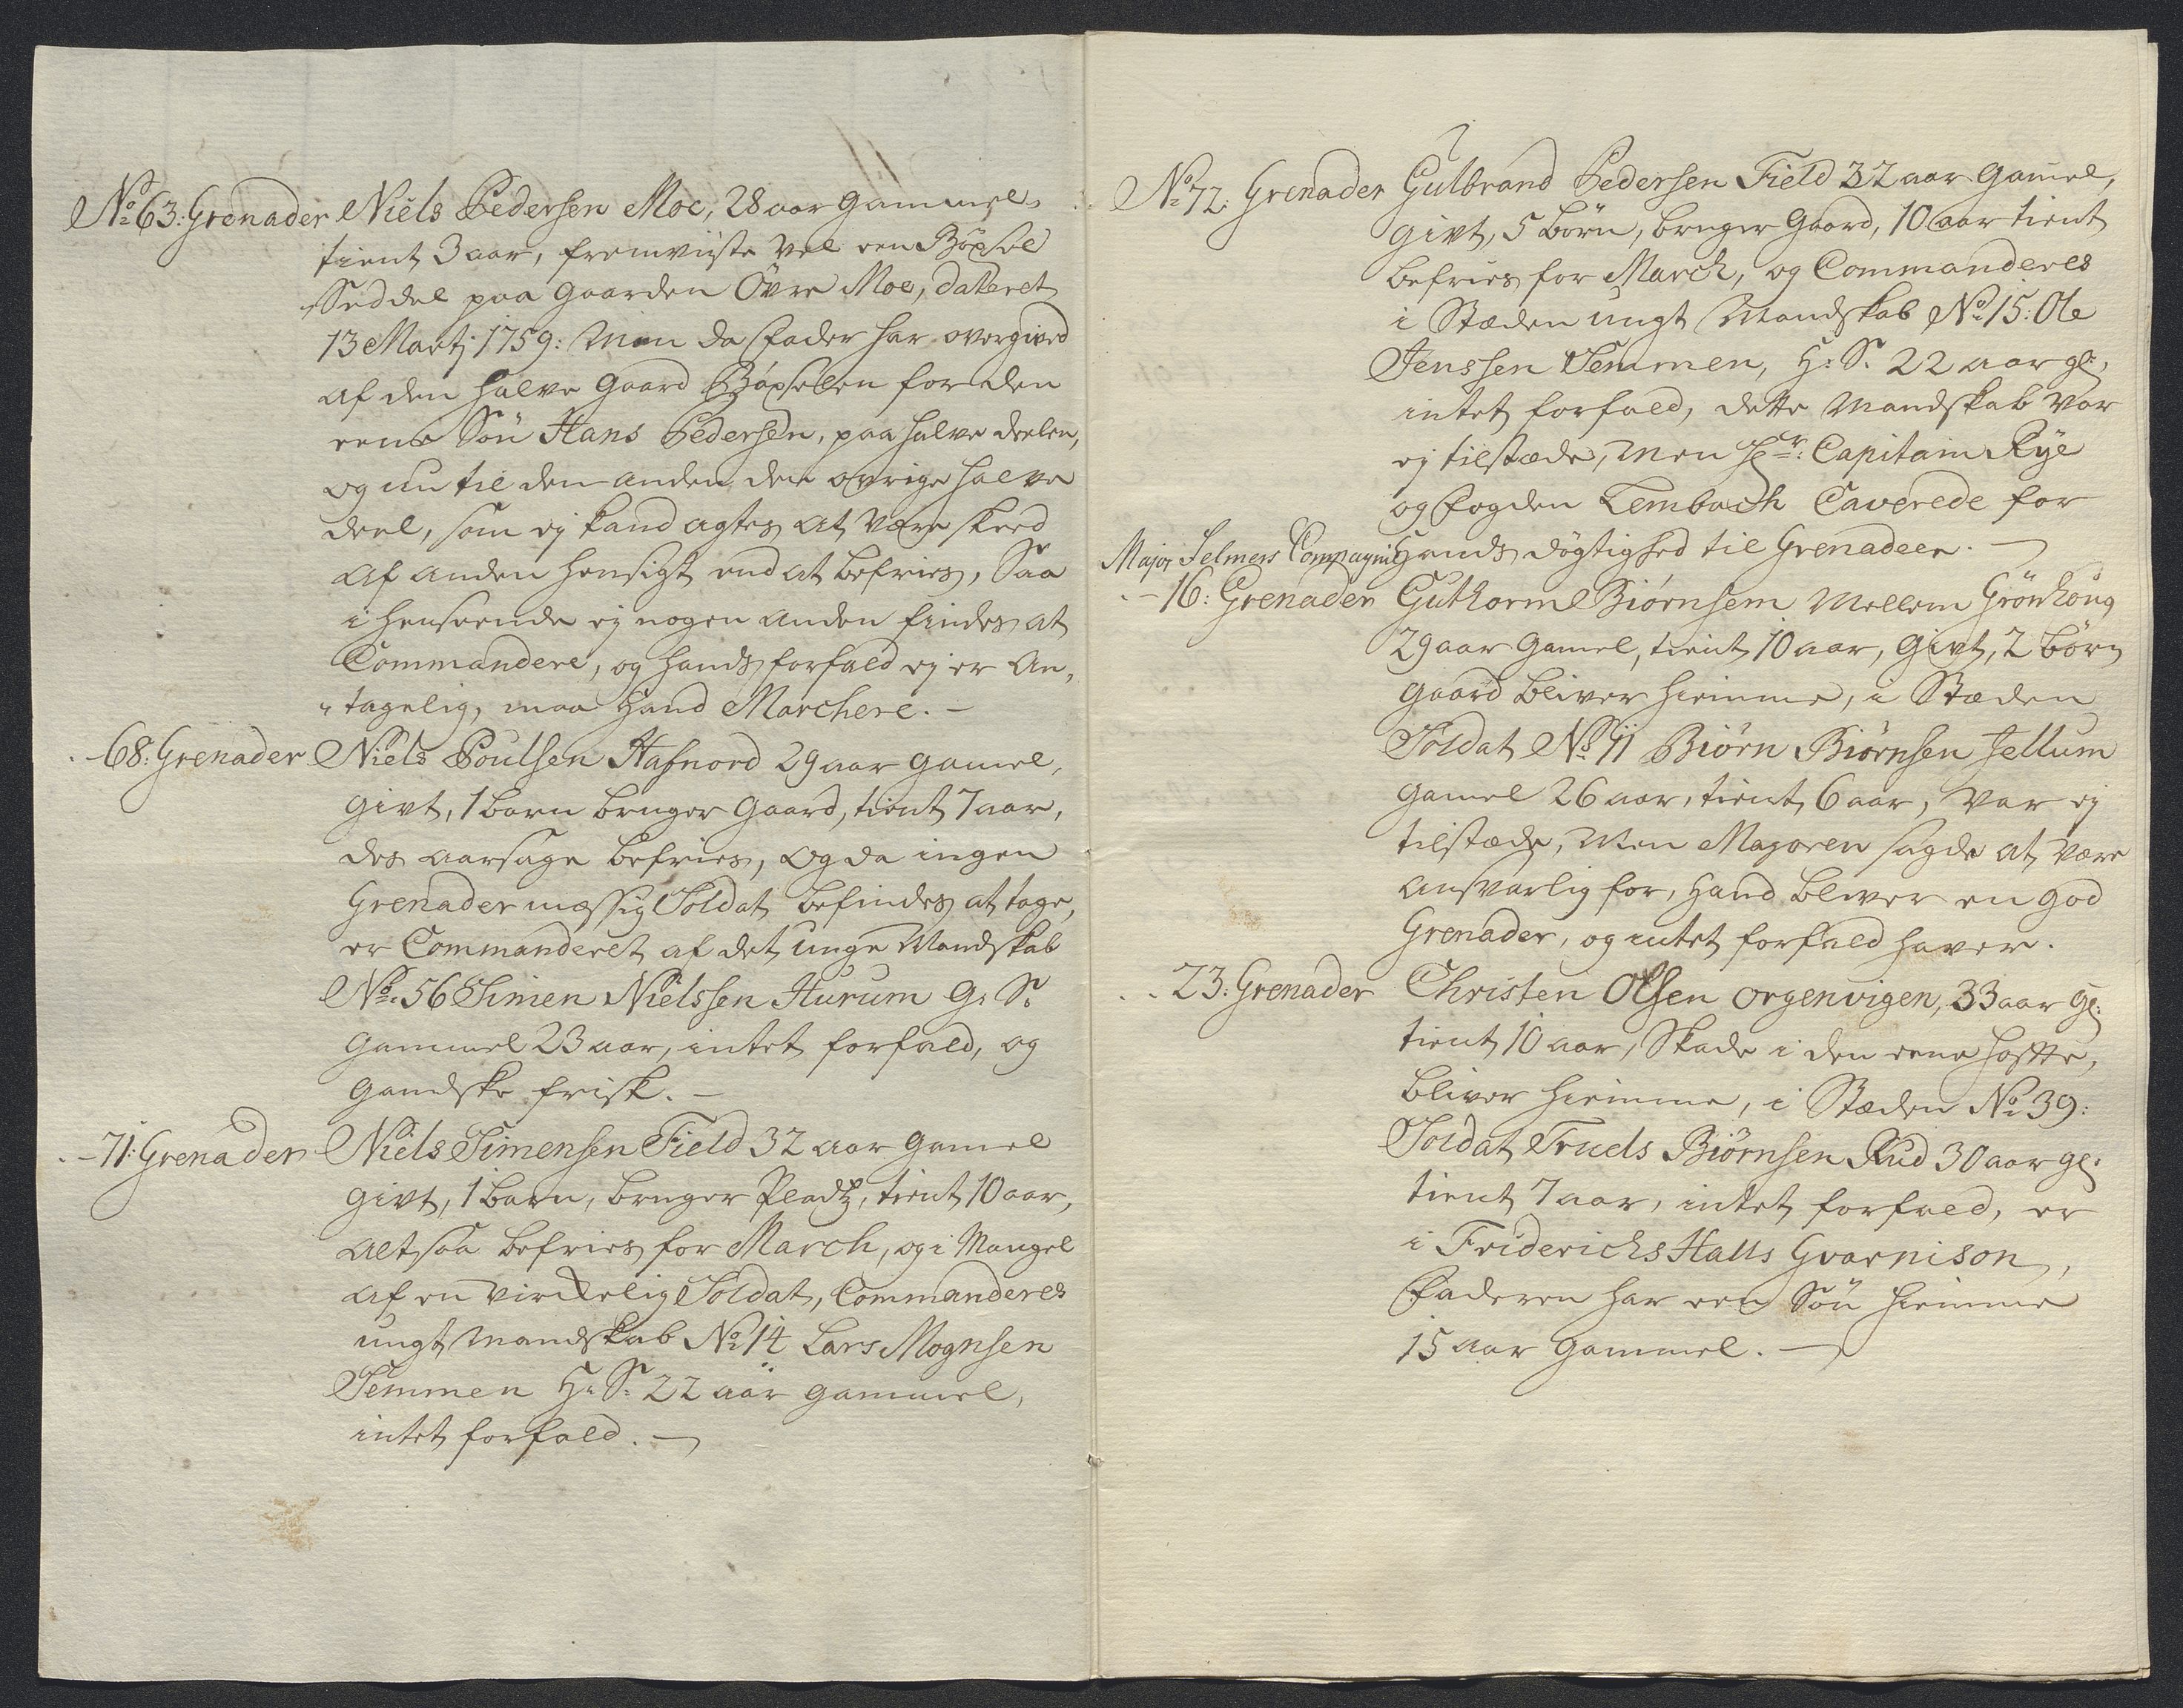 No 63: Grenader Niels Pedersen Moe, 28 aar gammel,
tient 3 aar, fremviiste vel een Böxsel
Seddel paa Gaarden Övre Moe, dateret
13 Martj 1759: Men da Fader har overgived
af den halve Gaard Böxselen for den
eene Sön Hans Pedersen, paa halve deelen,
og nu til den anden den øvrige halve
deel, som ej kand agtes at være skeed
af anden hensigt end at befries, Saa
i henseende ej nogen anden findes at
Commandere, og hands forfald ej er An,
„tagelig, maa hand Marchere. –
- 68: Grenader Niels Poulsen Hafnord 29 aar gamel,
givt, 1 barn bruger Gaard, tient 7 aar,
des aarsage befries, og da ingen
Grenader mæssig Soldat befindes at tage,
er Commanderet af det unge Mandskab
No. 56 Simen Nielssen Hurum G: S:
gammel 23 aar, intet forfald, og
gandske frisk. –
- 71: Grenader Niels Simensen Field 32 aar gamel
givt, 1 barn, bruger Pladtz, tient 10 aar,
altsaa befries for March, og i Mangel
af en virkelig Soldat, Commanderes
ungt Mandskab No 14 Lars Mognsen
Temmen H: S: 22 aar gammel,
intet forfald. –
No 72: Grenader Gulbrand Pedersen Field 32 aar gamel,
givt, 5 börn, bruger Gaard, 10 aar tient
befries for March, og Commanderes
i Stæden ungt Mandskab No 15: Ole
Jenssen Temmen, H: S. 22 aar gl:
intet forfald, dette Mandskab var
ej tilstæde, men Hr: Capitain Rye
og Fogden Lembach Caverede for
Major Selmers Compagnie hands dögtighed til Grenadeer. –
- 16: Grenader Guthorm Biörnsem Mellem Grönhoug
29 aar gamel, tient 10 aar, givt, 2 börn
gaard bliver hiemme, i Stæden
Soldat No 11 Biörn Biörnsen Jellum
gamel 26 aar, tient 6 aar, var ej
tilstæde, Men Majoren sagde at være
ansvarlig for, hand bliver en god
Grenader, og intet forfald haver.
- 23: Grenader Christen Olsen Orgenvigen, 33 aar gl:
tient 10 aar, Skade i den eene hofte,
bliver hiemme, i Stæden No 39:
Soldat Truels Biörnsen Rud 30 aar gl:
tient 7 aar, intet forfald, er
i Friderichs Halls Gvarnison,
Faderen har een Sön hiemme
15 aar gammel. –